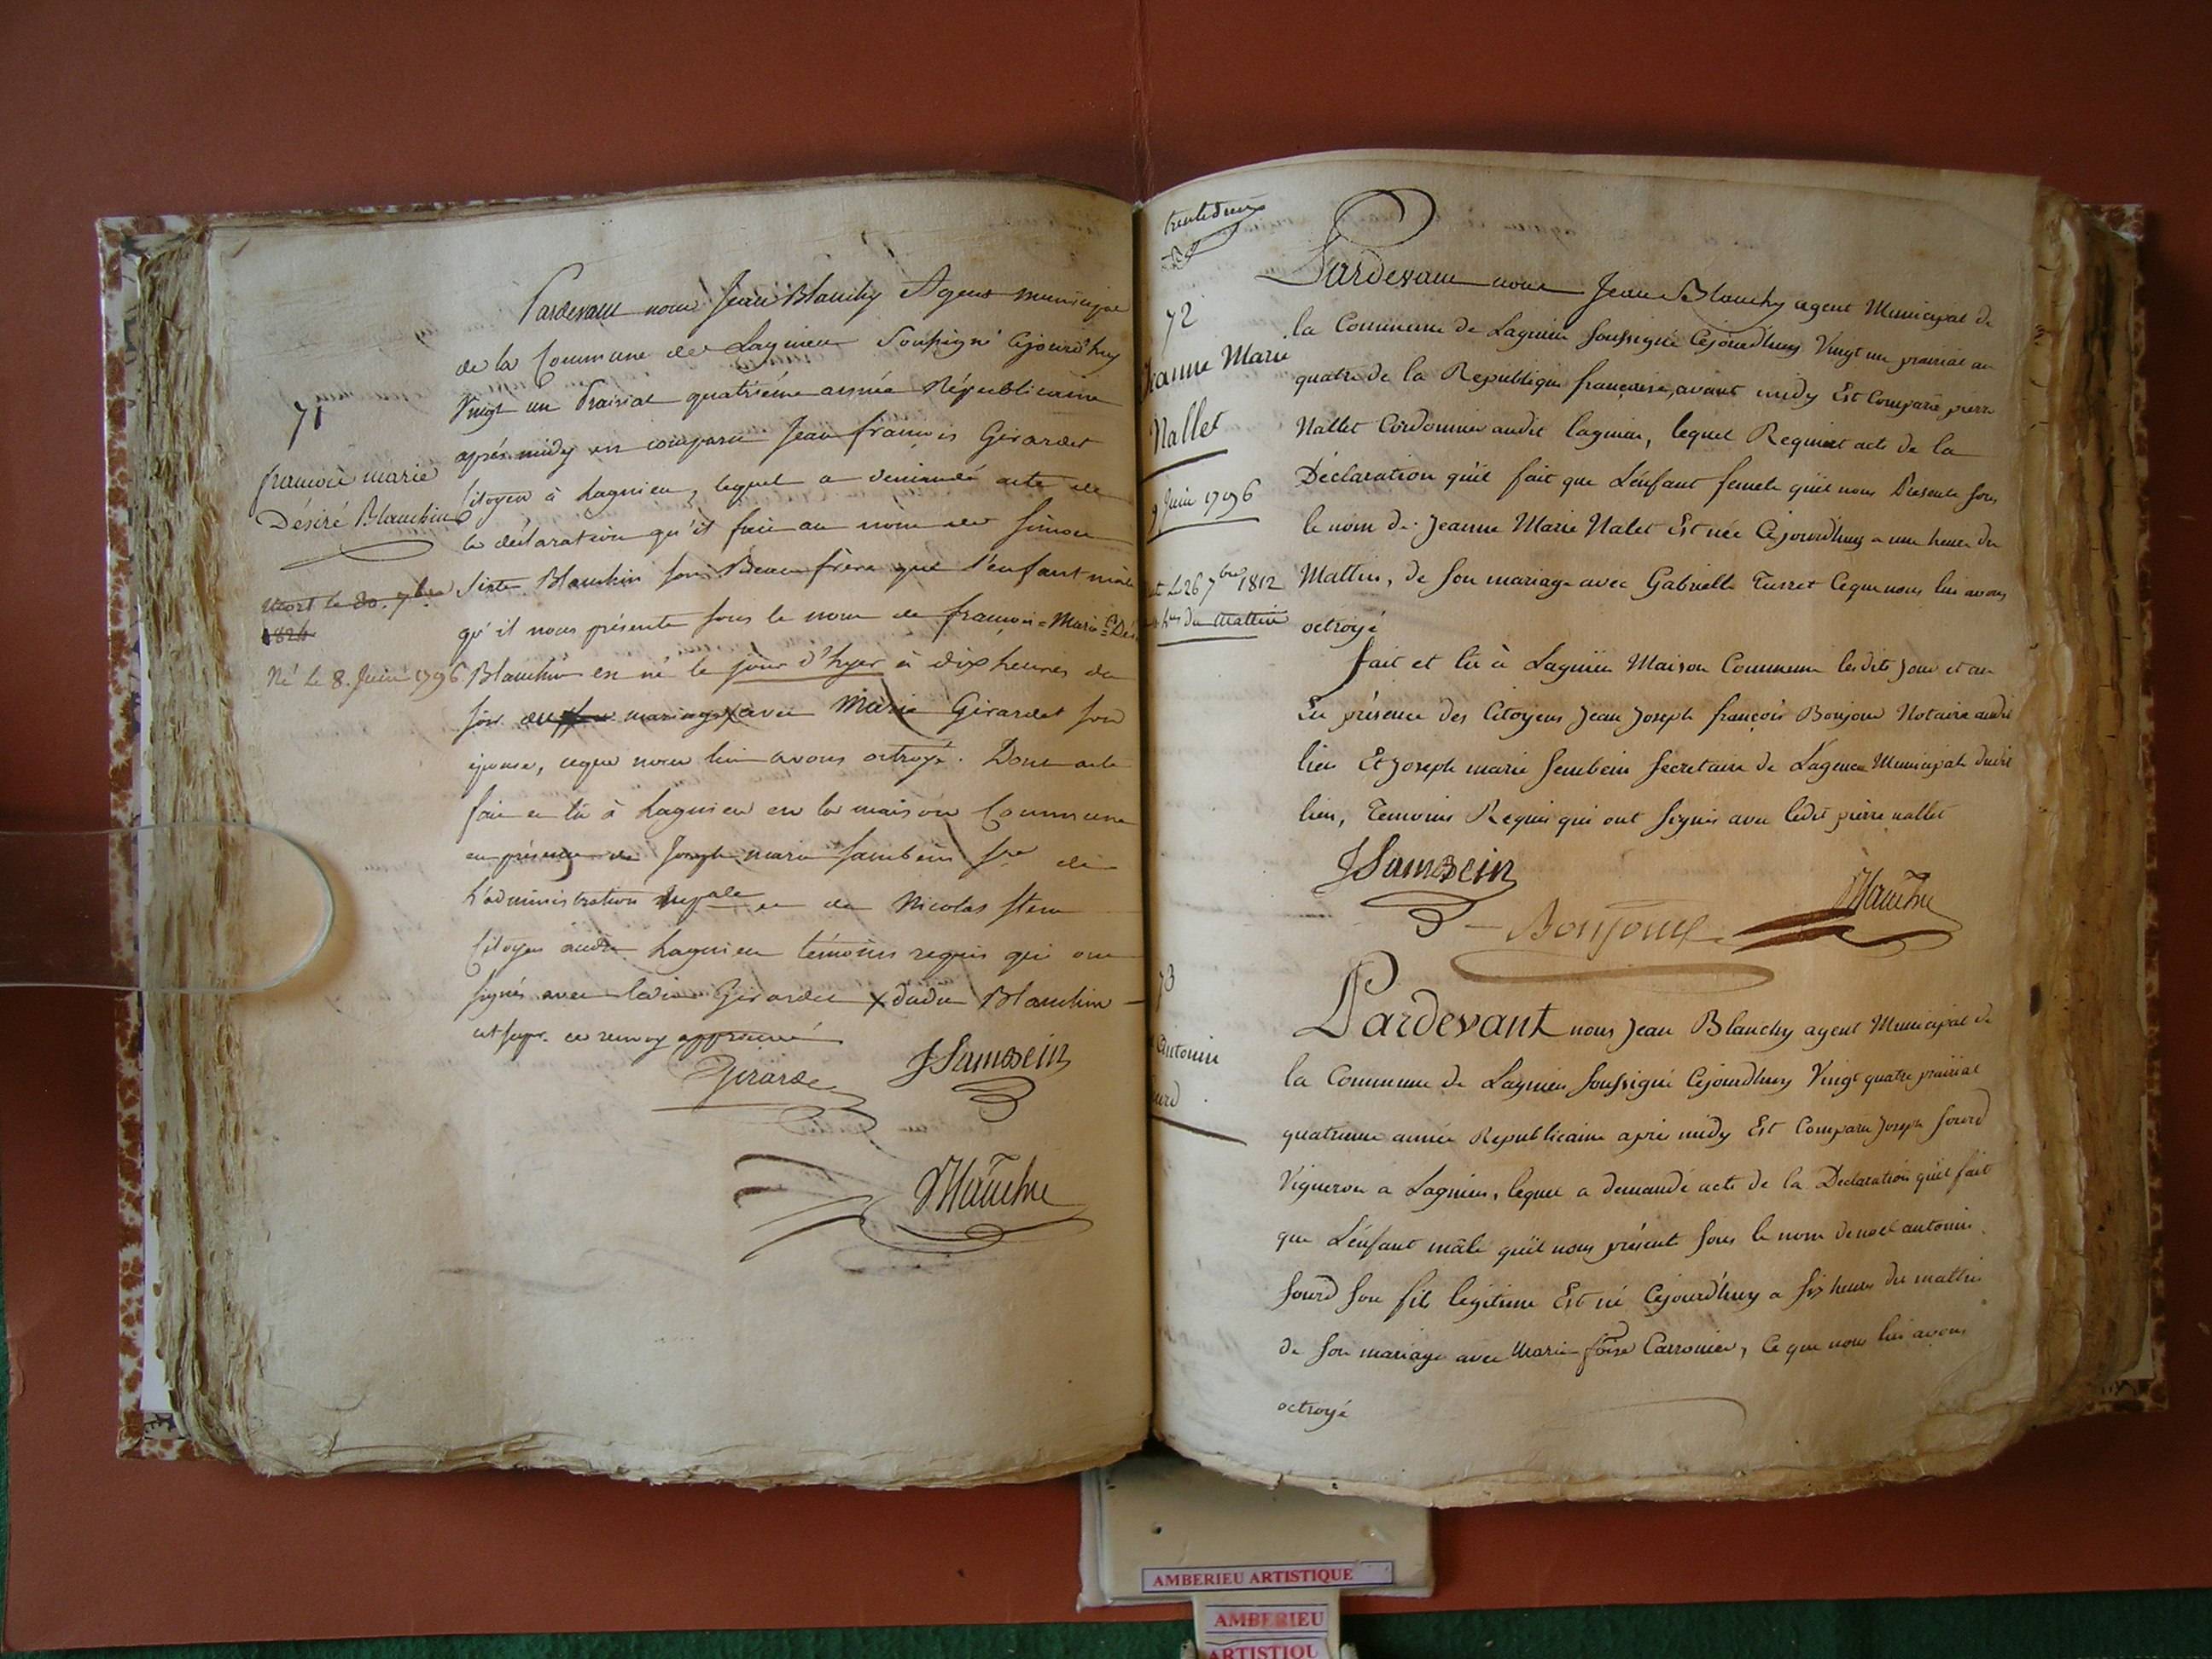 71
françois marie
Désiré Blanchin
Mort le 20. 7bre
1824
Né le 8. Juin 1796
Pardevant nous Jean Blanchy Agent municipal
de la Commune de Lagnieu Soussigné Cejourd'huy
Vingt un Prairial quatriéme année Républicaine
après midy est comparu Jean françois Girardet
Citoyen à Lagnieu, lequel a demandé acte de
la déclaration qu'il fait au nom de Simon
Sixte Blanchin son Beau frère que l'enfant mâle
qu'il nous présente sous le nom de françois=Marie=Dés
Blanchin est né le jour d'hyer à dix heures du
soir mariage x avec Marie Girardet son
épouse, ceque nous lui avons octroyé. Dont acte
fait et lû à Lagnieu en la maison Commune
en présence de Joseph marie Sambein Sre de
L'administration mupale et de Nicolas Stem
Citoyen audit Lagnieu témoins requis qui ont
signés avec ledit Girardet x dudit Blanchin
ut supr. ce renvoy approuvé
Girardet
JSambein
Blanchy
trentedeux
72
Jeanne Marie
Nallet
9 Juin 1796
le 26 7bre 1812
hes du mattin
Pardevant nous Jean Blanchy agent Municipal de
la Commune de Lagnieu soussigné Cejourdhuy Vingt un prairial an
quatre de la Republique françoise, avant midy Est Comparu pierre
Nallet Cordonnier audit lagnieu, lequel Requiert acte de la
Déclaration qu'il fait que L'enfant femele qu'il nous Presente sous
le nom de Jeanne Marie Nalet Est née Cejourdhuy a une heure du
Mattin, de son mariage avec Gabrielle Turret Ceque nous lui avons
octroyé
fait et lû à Lagnieu Maison Commune lesdits Jour et an
En présence des Citoyens Jean Joseph françois Bonjour Notaire audit
lieu Et Joseph marie Sembein secretaire de L'agence Municipale dudit
lieu, Temoins Requis qui ont signés avec ledit pierre nallet
JSambein
Bonjour
Blanchy
73
Antonin
Sourd
Pardevant nous Jean Blanchy agent Municipal de
la Commune de Lagnieu soussigné Cejourdhuy Vingt quatre prairial
quatrieme année Republicaine après midy Est Comparu Joseph Sourd
Vigneron a Lagnieu, lequel a demandé acte de la Declaration qu'il fait
que L'enfant mâle qu'il nous présente sous le nom de noel antonin
Sourd son fils légitime Est né Cejourd'huy a six heures du mattin
de son mariage avec Marie foise Carronier, Ce que nous lui avons
octroyé
AMBERIEU ARTISTIQUE
AMBERIEU
ARTISTIQU